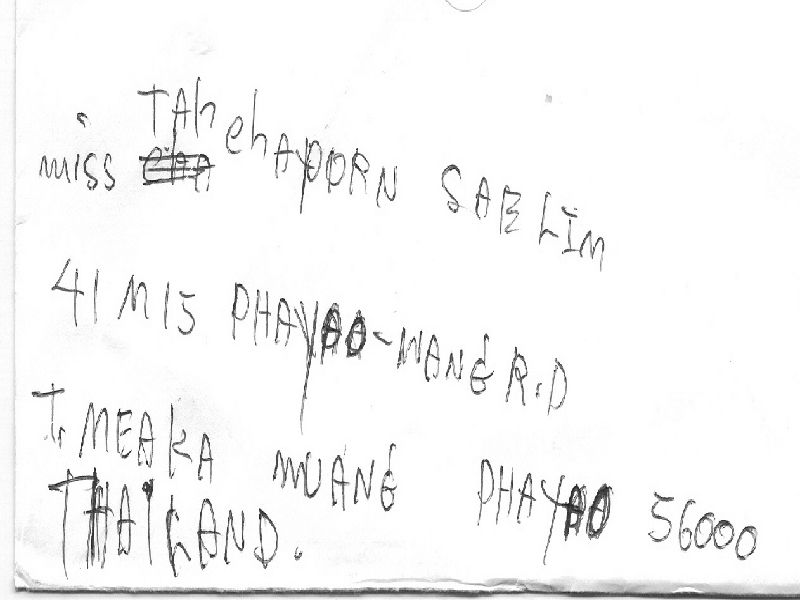 miss TAnchAyPORN SAE LIM
41 M 15 PHAYAO-WANG R.D
T. MEAKA MUANG PHAYAO 56000
THAILAND.